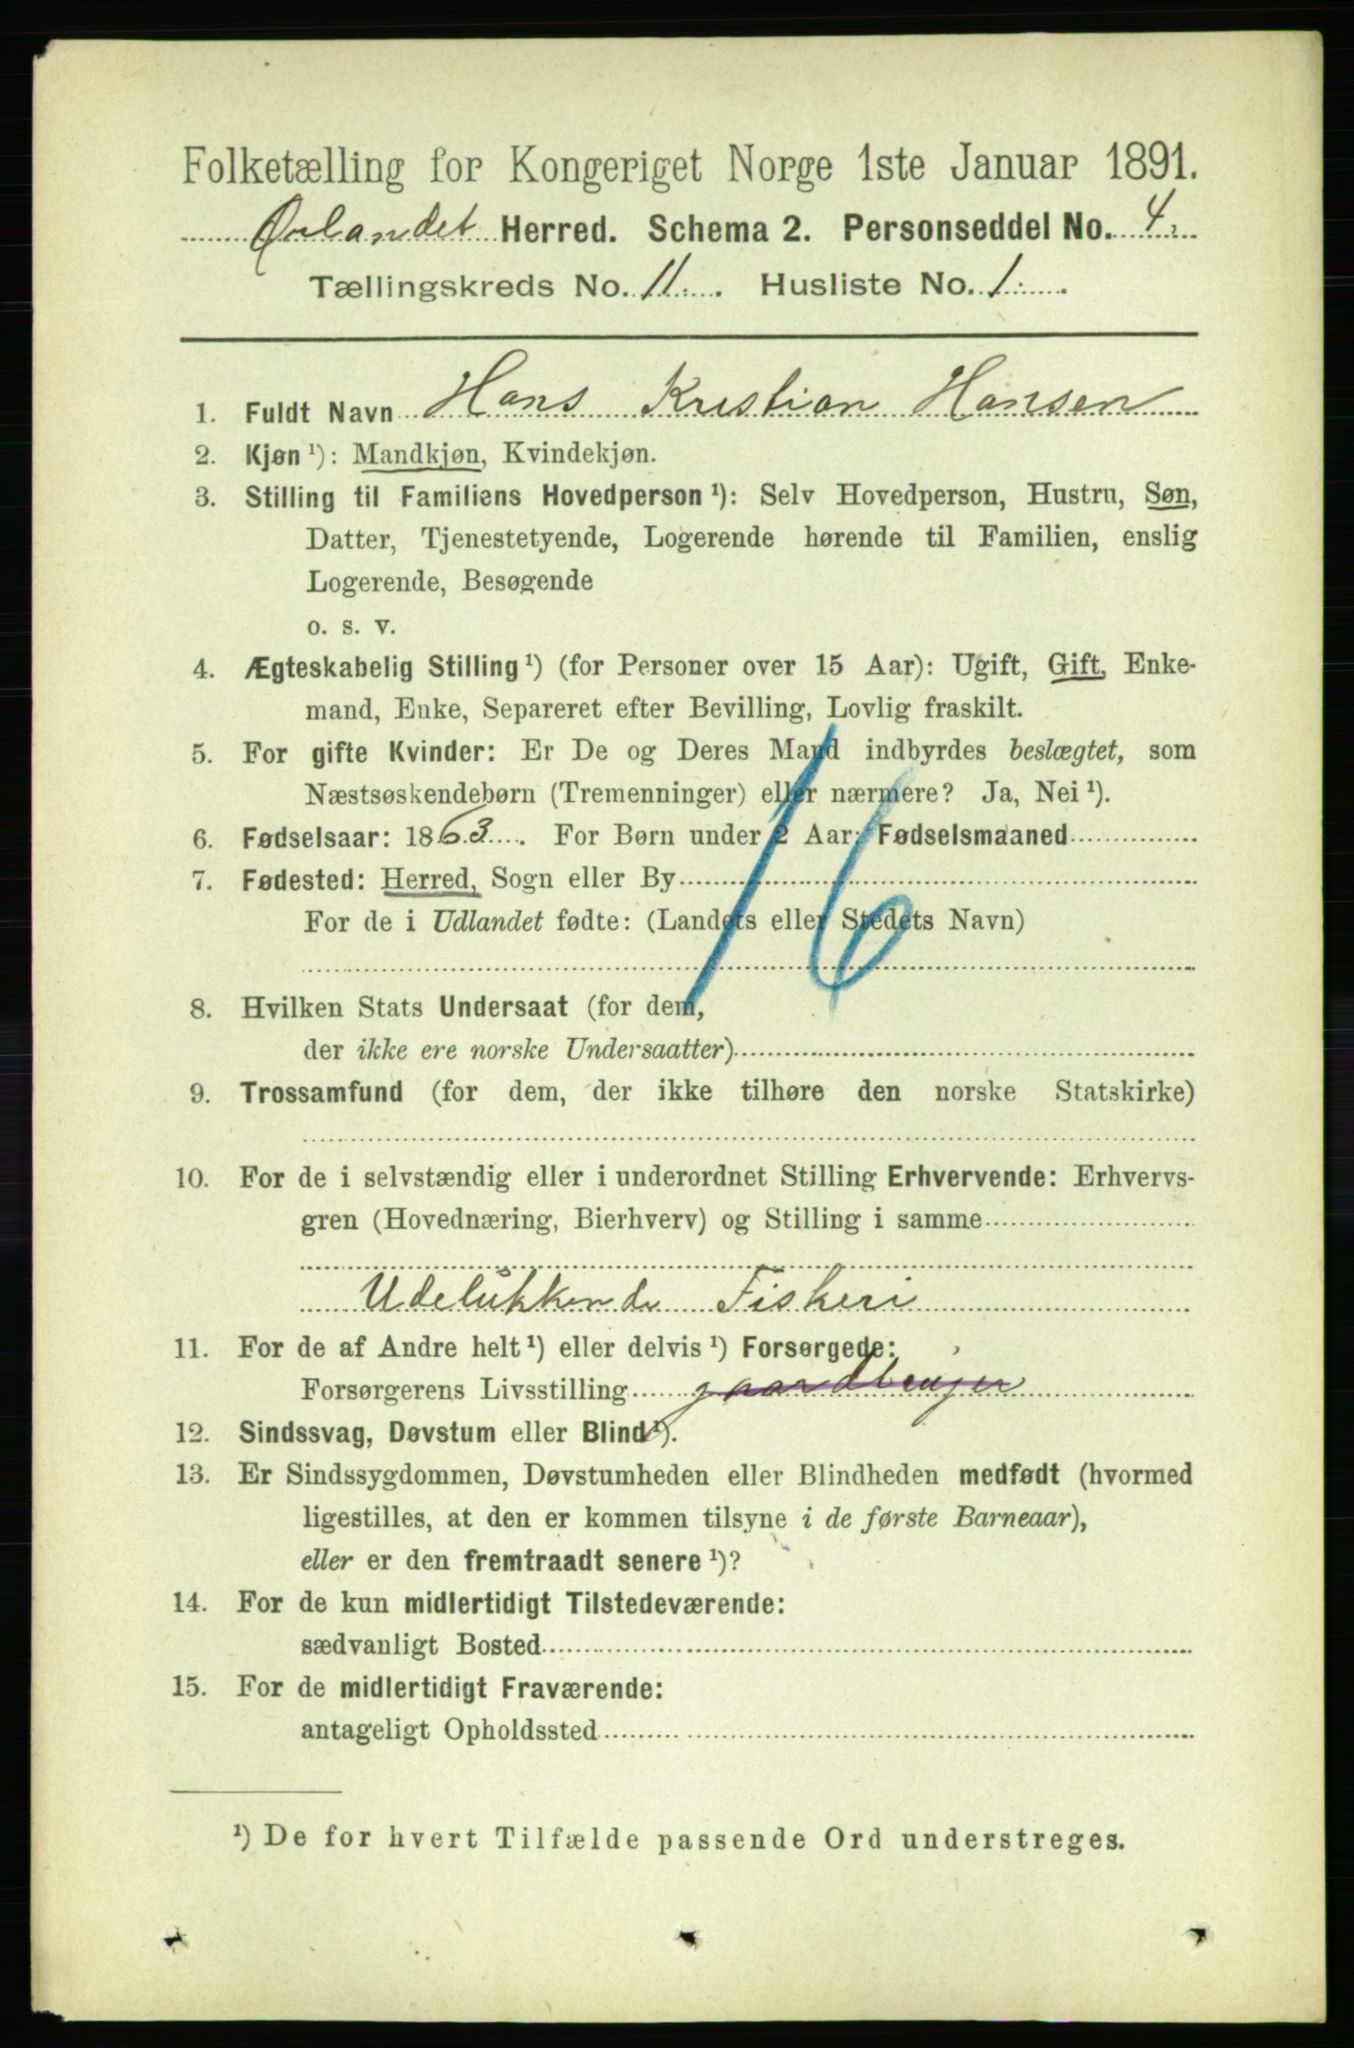 Folketælling for Kongeriget Norge 1ste Januar 1891.
Ørlandet Herred. Schema 2. Personseddel No. 4.
Tællingskreds No. 11. Husliste No. 1.
1. Fuldt Navn Hans Kristian Hansen
2. Kjøn ¹): Mandkjøn, Kvindekjøn.
3. Stilling til Familiens Hovedperson ¹): Selv Hovedperson, Hustru, Søn,
Datter, Tjenestetyende, Logerende hørende til Familien, enslig
Logerende, Besøgende
o. s. v.
4. Ægteskabelig Stilling ¹) (for Personer over 15 Aar): Ugift, Gift, Enke-
mand, Enke, Separeret efter Bevilling, Lovlig fraskilt.
5. For gifte Kvinder: Er De og Deres Mand indbyrdes beslægtet, som
Næstsøskendebørn (Tremenninger) eller nærmere? Ja, Nei ¹).
6. Fødselsaar: 1863. For Børn under 2 Aar: Fødselsmaaned
7. Fødested: Herred, Sogn eller By
For de i Udlandet fødte: (Landets eller Stedets Navn)
16
8. Hvilken Stats Undersaat (for dem,
der ikke ere norske Undersaatter)
9. Trossamfund (for dem, der ikke tilhøre den norske Statskirke)
10. For de i selvstændig eller i underordnet Stilling Erhvervende: Erhvervs-
gren (Hovednæring, Bierhverv) og Stilling i samme
Udelukkende Fiskeri
11. For de af Andre helt ¹) eller delvis ¹) Forsørgede:
Forsørgerens Livsstilling gaardbruger
12. Sindssvag, Døvstum eller Blind ¹).
13. Er Sindssygdommen, Døvstumheden eller Blindheden medfødt (hvormed
ligestilles, at den er kommen tilsyne i de første Barneaar),
eller er den fremtraadt senere ¹)?
14. For de kun midlertidigt Tilstedeværende:
sædvanligt Bosted
15. For de midlertidigt Fraværende:
antageligt Opholdssted
¹) De for hvert Tilfælde passende Ord understreges.